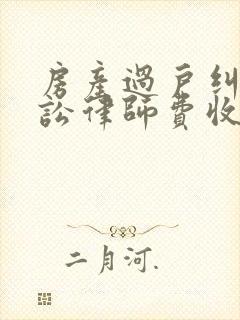 房產過戶糾
訟律師費收
二月河.